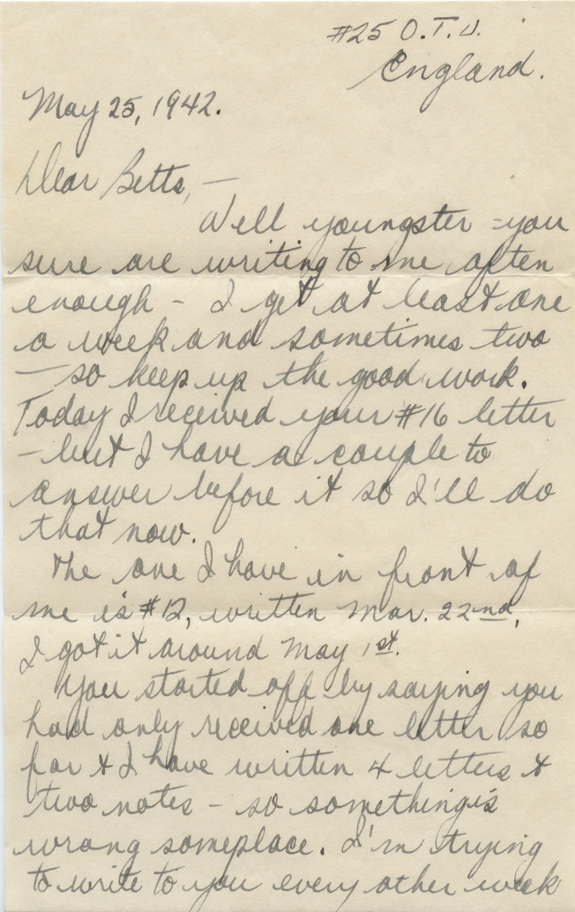 #25 O.T.U.
England.
May 25, 1942.
Dear Betts, —
Well youngster - you
sure are writing to me often
enough - I get at least one
a week and sometimes two
— so keep up the good work.
Today I received your #16 letter
- but I have a couple to
answer before it so I'll do
that now.
The one I have in front of
me is #12, written Mar. 22nd,
I got it around May 1st.
You started off by saying you
had only received one letter so
far & I have written 4 letters &
two notes - so something's
wrong someplace. I'm trying
to write to you every other week